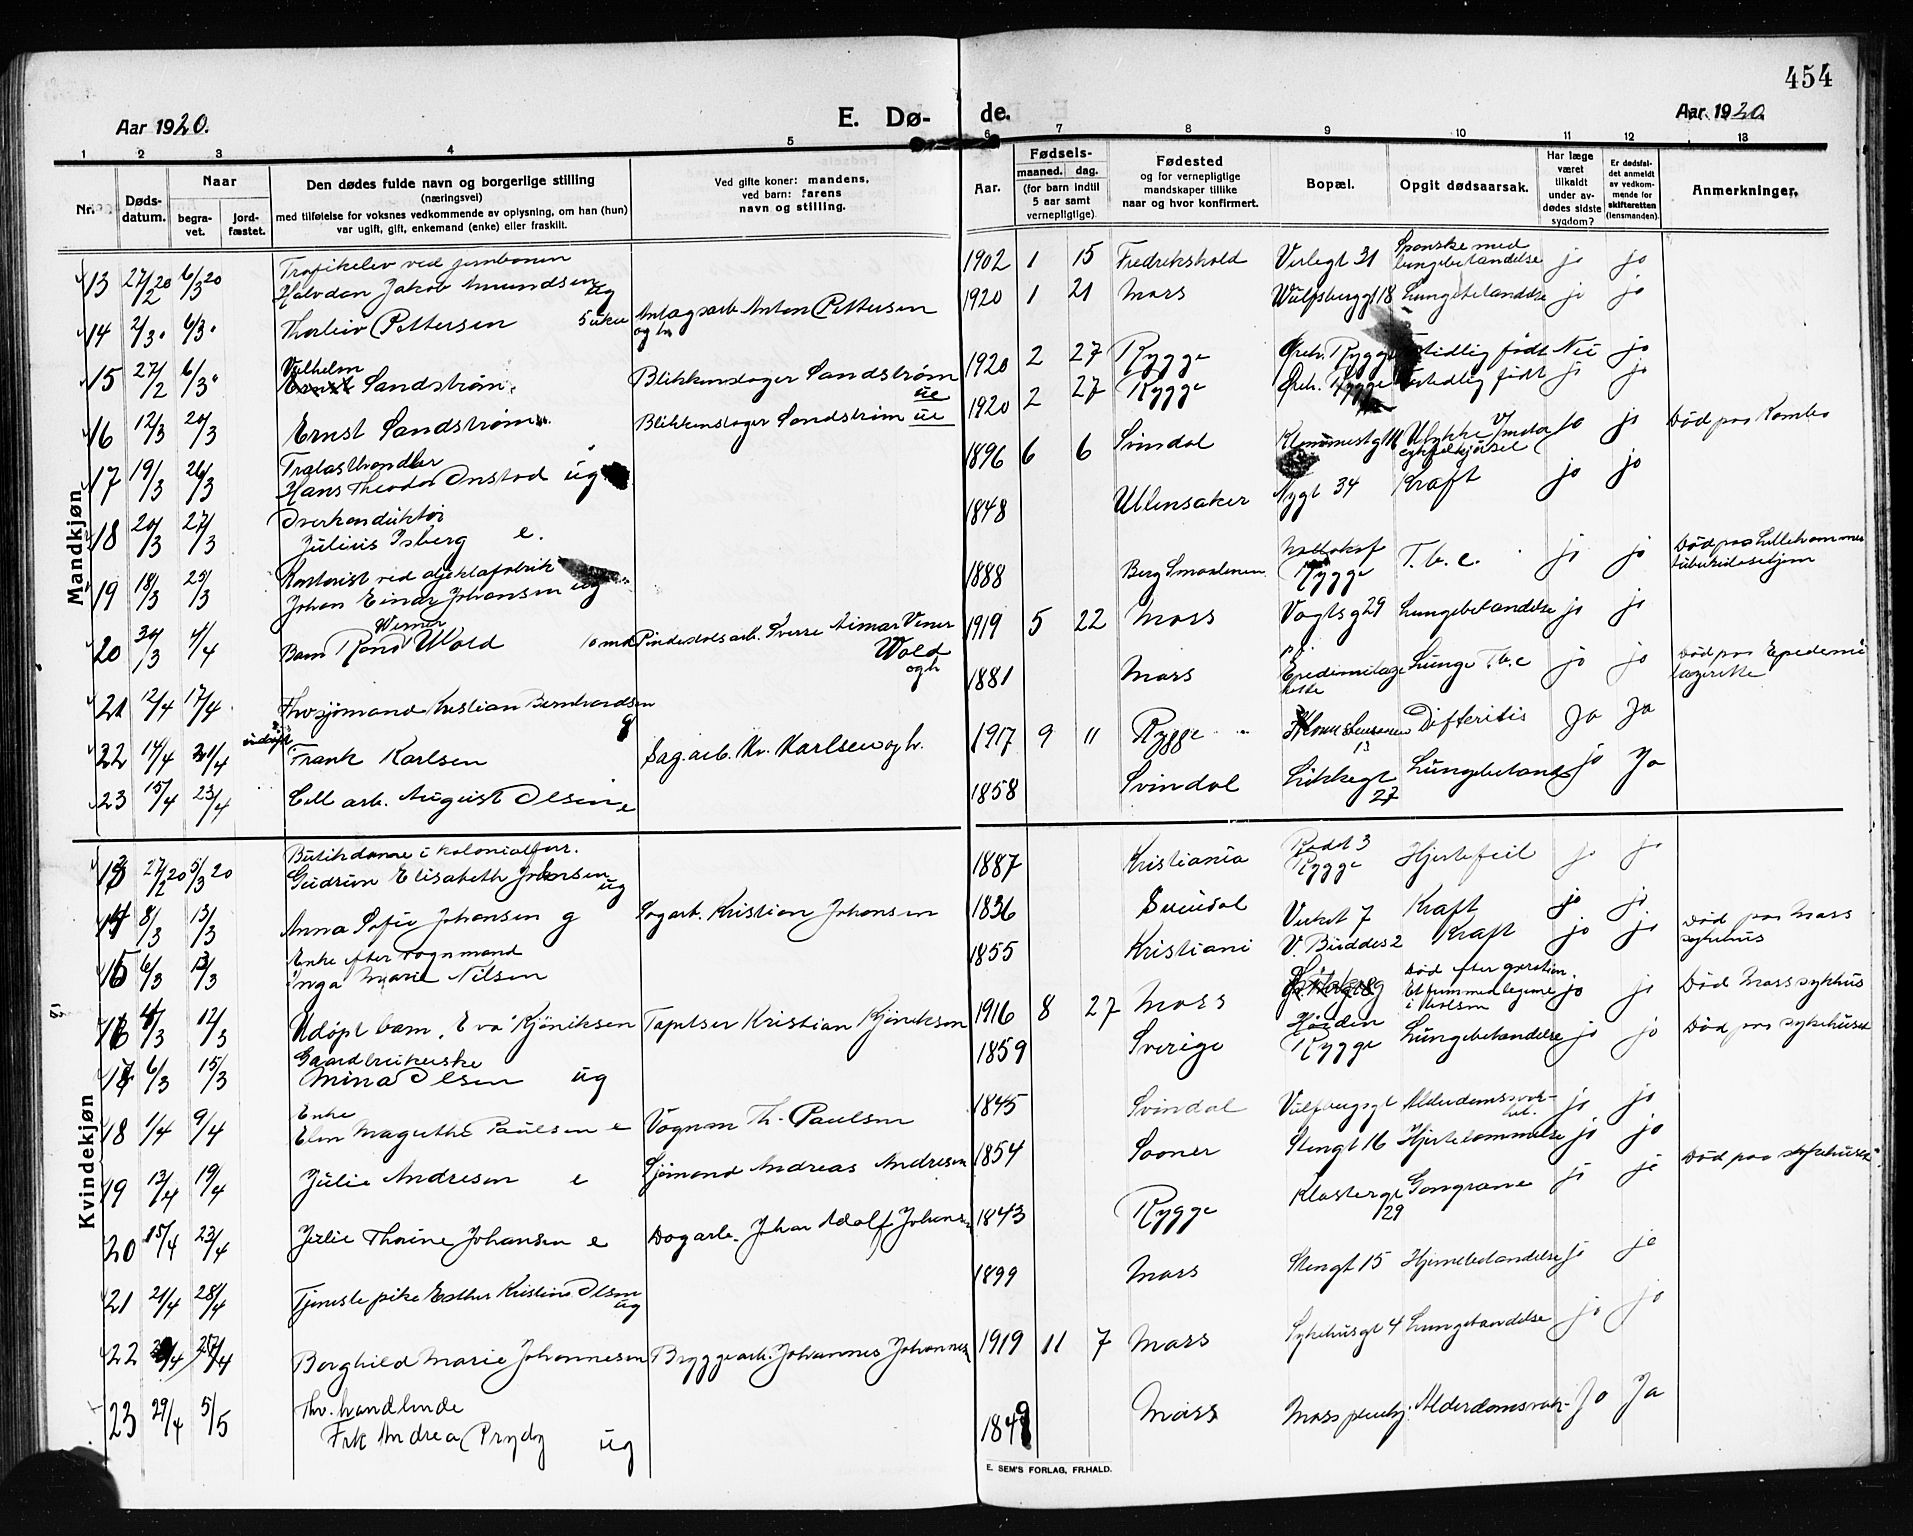 454
Aar 1920.
E. Dø-
de.
Aar 1920.
1 2 3 4 5 6 7 8 9 10 11 12 13
Nr.
Døds-
datum.
Naar
begra-
vet.
jord-
fæstet.
Den dødes fulde navn og borgerlige stilling
(næringsvei)
med tilføielse for voksnes vedkommende av oplysning, om han (hun)
var ugift, gift, enkemand (enke) eller fraskilt.
Ved gifte koner: mandens,
ved barn: farens
navn og stilling.
Aar.
Fødsels-
maaned. dag.
(for barn indtil
5 aar samt
vernepligtige)
Fødested
og for vernepligtige
mandskaper tillike
naar og hvor konfirmert.
Bopæl.
Opgit dødsaarsak.
Har læge
været
tilkaldt
under av-
dødes sidste
sygdom?
Er dødsfal-
det anmeldt
av vedkom-
mende for
skifteretten
(lensmanden).
Anmerkninger.
Mandkjøn
13 27/2 20 6/3 20 Trafikelev ved jernbanen
Halvdan Jakob Amundsen ug
1902 1 15 Fredrikshald Verlegt 31 Spanske med
lungebetændelse jo jo
14 2/3 6/3 Thorleiv Pettersen 5 uker Anton Pettersen
og h
1920 1 21 Moss Wulfsberggt 18 Lungebetændelse jo jo
15 27/2 6/3 Vilhelm
Ernst Sandstrøm Blikkenslager Sandstrøm
ue
1920 2 27 Rygge Rygge tidlig født Nei jo
16 12/3 20/3 Ernst Sandstrøm Blikkenslager Sandstrøm ue
1920 2 27 Rygge Rygge tidlig født jo jo
17 19/3 26/3 Trælasthandler
Hans Theodor Onstad ug
1896 6 6 Svindal Ulykke v/motor
cykkelkjørsel jo jo Død paa Kambo
18 20/3 27/3 Overkonduktør
Julius Isberg e.
1848 Ullensaker Nygt 34 Kræft jo jo
19 18/3 25/3 Kontorist ved
Johan Einar Johansen ug
1888 Berg Smaalenene Rygge T.b.c. jo jo Død paa Lillehammer
tuberkulosehjem
20 30/3 4/4 Werner
Barn Wold 10 md Sverre Aimar Verner
Wold
og h
1919 5 22 Moss Vogtsg 29 Lungebetændelse jo jo
21 12/4 17/4 Fhv sjømand Kristian Bernhardsen
g
1881 Moss Lunge Tb.c jo jo Død paa Epedemi
lazerette
22 14/4 21/4 Frank Karlsen Sag.arb. Kr. Karlsen og h.
1917 9 11 Rygge Difteritis Ja Ja
23 15/4 23/4 Cell arb. August Olsen e
1858 Svindal 27 Lungebetænd jo Ja
Kvindekjøn
13 27/2 20 5/3 20 Butikdame i kolonialforr.
Gudrun Elisabeth Johansen
ug
1887 Kristiania Rygge Hjertefeil jo jo
14 8/3 13/3 Anna Sofie Johansen g Sagarb. Kristian Johansen
1836 Svindal 7 Kræft jo jo
15 6/3 13/3 Enke efter vognmand
Inga Marie Nilsen
1855 Kristiani V. Buddes 2 Kræft jo jo Død paa Moss
sykehus
16 4/3 12/3 Adopt barn. Eva Kjöniksen Tapetser Kristian Kjöniksen
1916 8 27 Moss Død efter operation.
Et fremmedlegeme
i halsen jo jo Død Moss sykhus
17 6/3 15/3 Gaardbrukerske
Mina Olsen ug
1859 Sverige Rygge Lungebetændelse jo jo Død paa sykehuset
18 1/4 9/4 Enke
Elen Magrethe Paulsen e Vognm Th. Paulsen
1845 Svindal Alderdomssvak-
het. jo jo
19 13/4 19/4 Julie Andresen e Sjömand Andreas Andresen
1854 Sooner Stengt 16 Hjertelammelse jo jo
20 15/4 23/4 Julie Thorine Johansen e Dagarb. Johan Adolf Johansen
1843 Rygge Klostergt
29 Gangræne jo jo Død paa sykehuset
21 21/4 28/4 Tjenestepike Esther Kristine Olsen
ug
1899 Moss Stengt 15 Hjernebetændelse jo jo
22 27/4 Borghild Marie Johannesen Bryggearb. Johannes Johannes
1919 11 7 Moss Sykehusgt 4 Lungebetændelse jo jo
23 29/4 5/5 Fhv. handlende
Frk Andrea Prydz ug
1849 Moss Moss pleiehj. Alderdomssvak- Jo Ja
E. SEM'S FORLAG, FR.HALD.